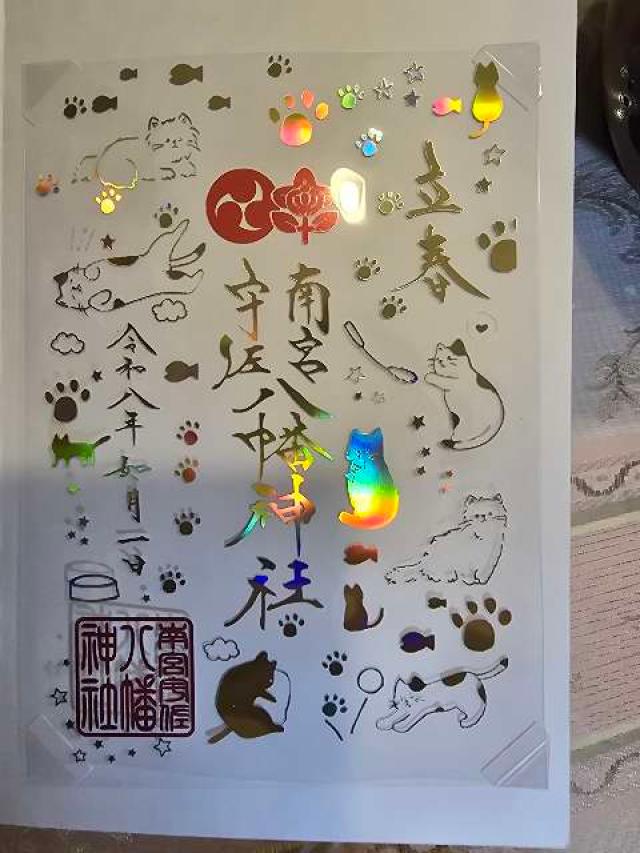 立春
南宮
宇佐
八幡神社
令和八年 如月二日
南宮宇佐
八幡
神社